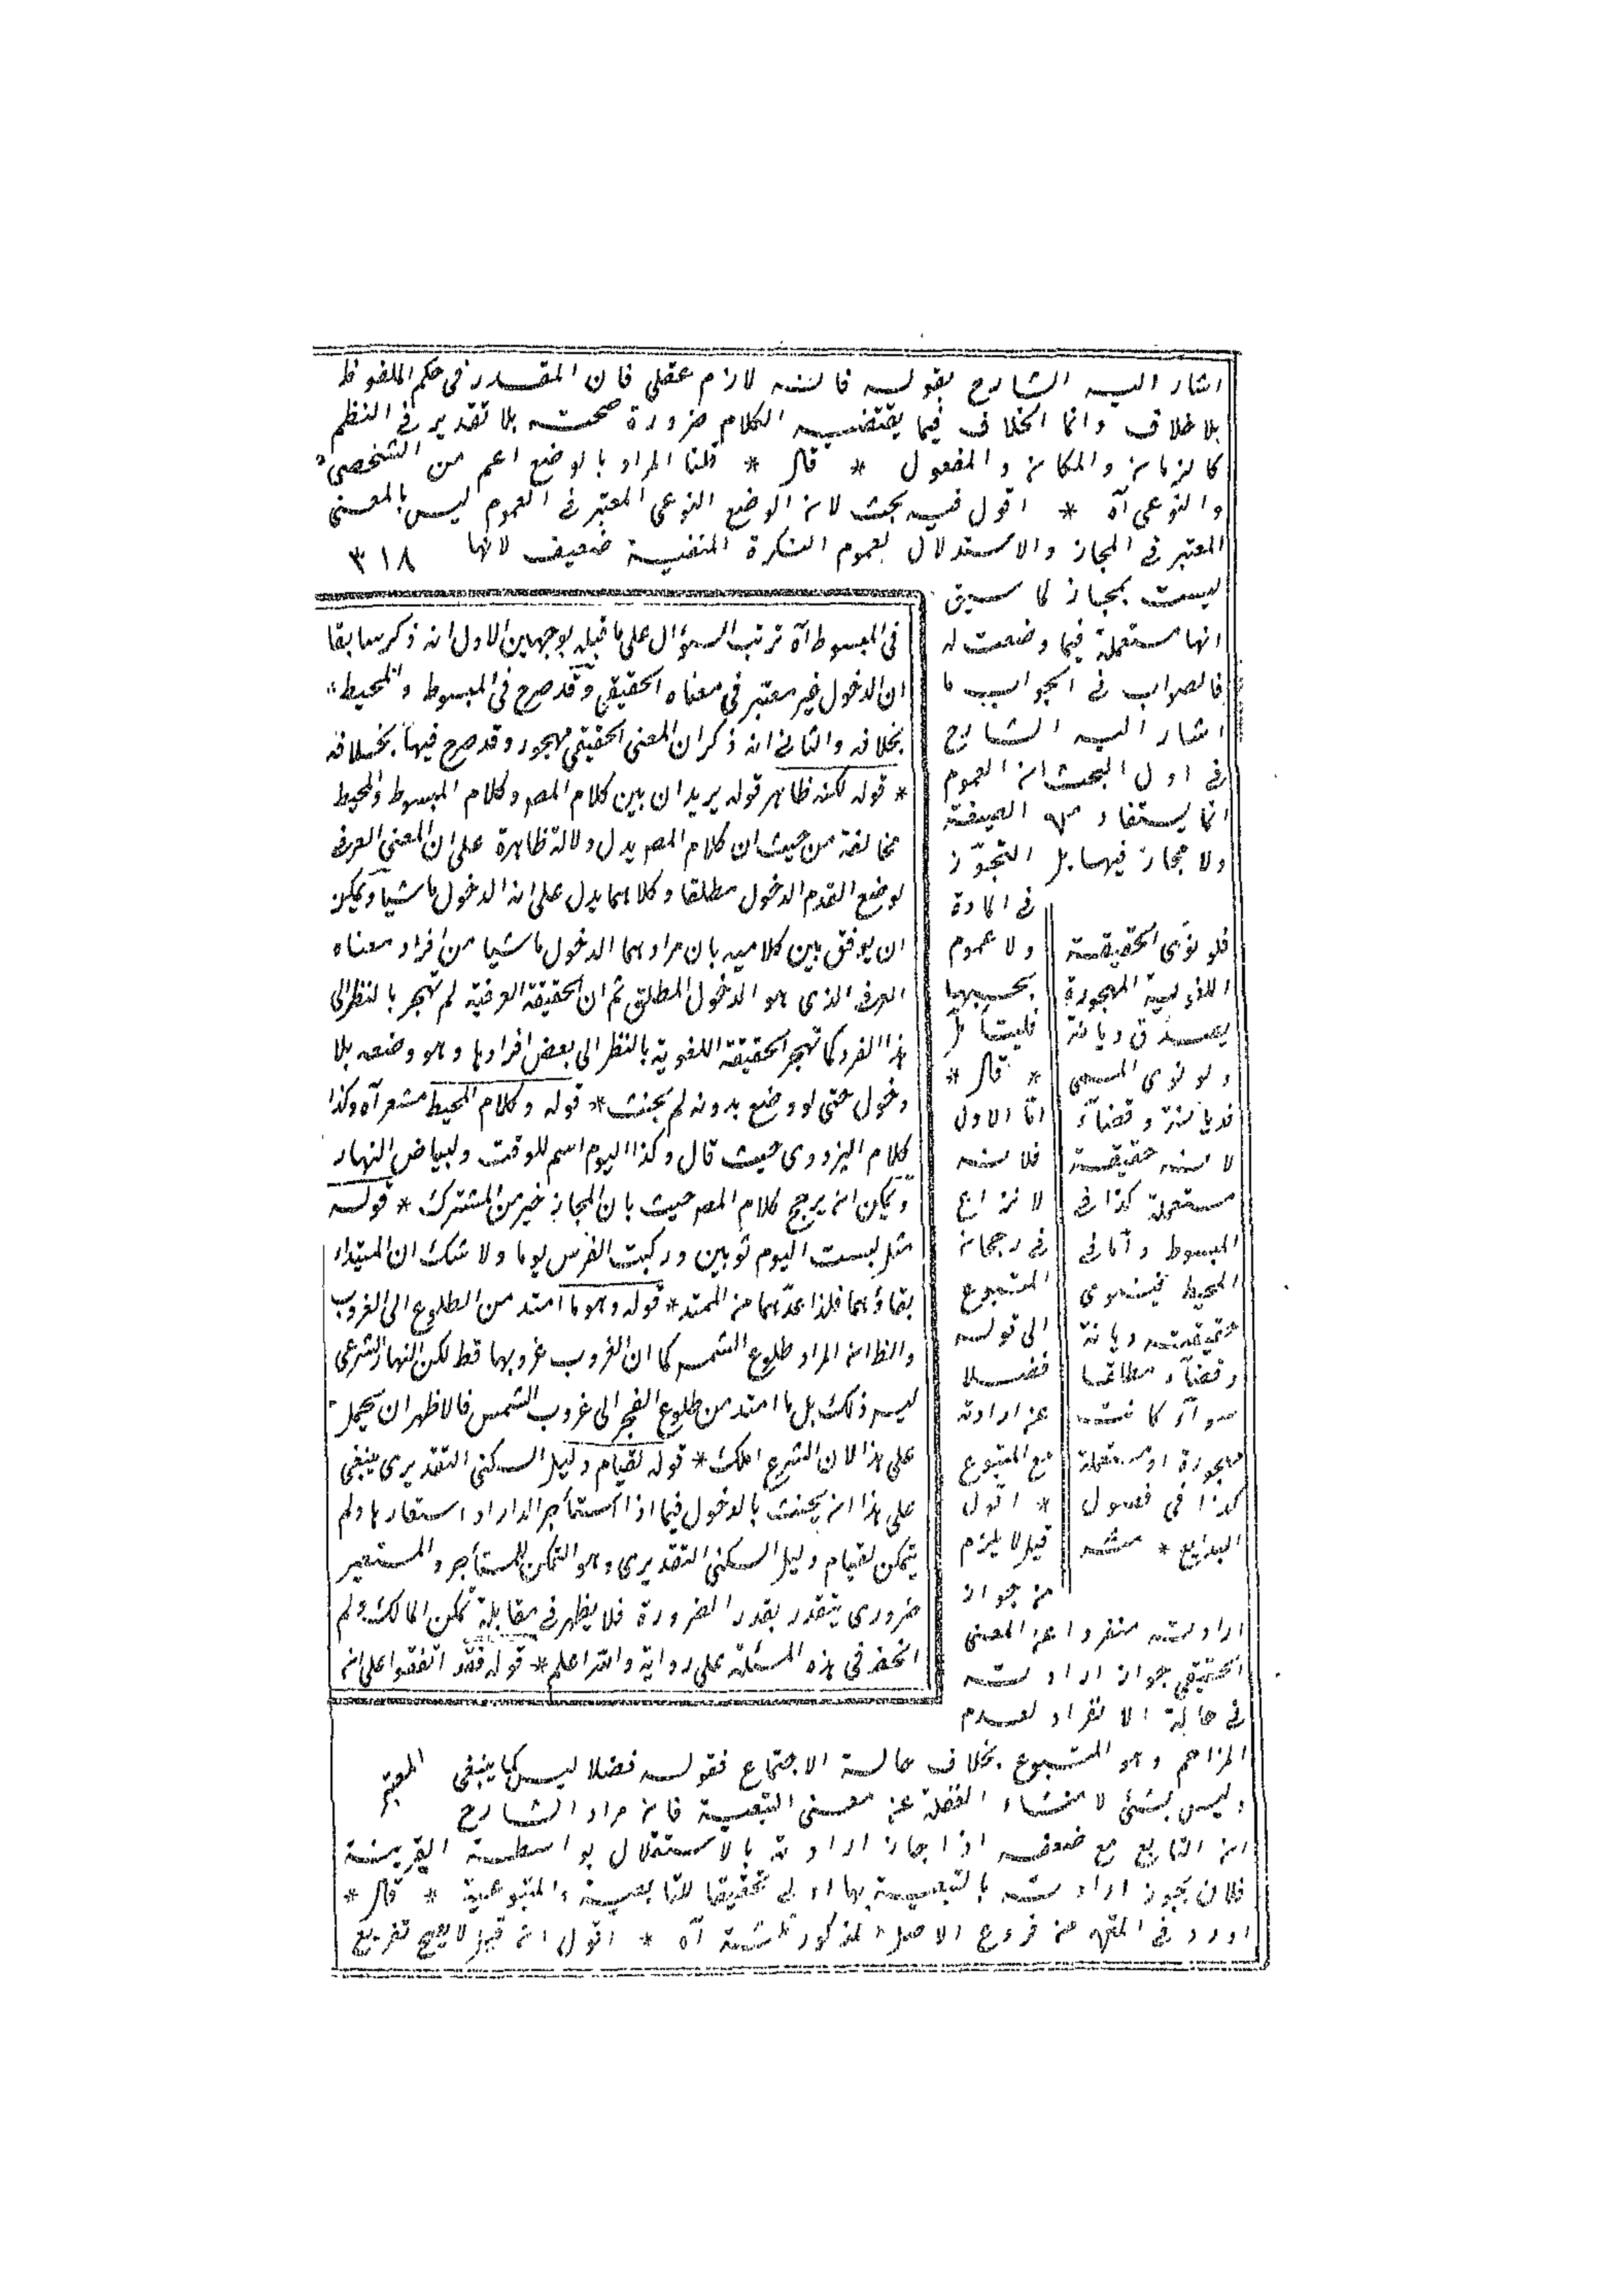 اشار اليه الشارح بقوله فانه لازم عقلي فان المقدر في حكم الملفوظ
بلا خلاف وانما الخلاف فيما يقتضيه الكلام ضرورة صحته بلا تقدير في النظم
كالزمان والمكان والمفعول * قال * قلنا المراد بالوضع اعم من الشخصي
والنوعي آه * اقول فيه بحث لان الوضع النوعي المعتبر في العموم ليس بالمعنى
المعتبر في المجاز والاستدلال بعموم النكرة المنفية ضعيف لانها
٣١٨
ليست بمجاز لما سبق
انها مستعملة فيما وضعت له
فالصواب في الجواب ما
اشار اليه الشارح
في اول البحث ان العموم
انما يستفاد من الصيغة
ولا مجاز فيها بل التجوز
في المادة
ولا عموم
بحسبها
فليتأمل
* قال *
اما الاول
فلانه
لا نزاع
في رجحان
المتبوع
الى قوله
فضلا
عن ارادته
مع المتبوع
* اقول
قيل لا يلزم
من جواز
ارادته منفردا عن المعنى
الحقيقي جواز ارادته
في حالة الانفراد لعدم
المزاحم وهو المتبوع بخلاف حالة الاجتماع فقوله فضلا ليس كما ينبغي
وليس بشئ لا منشاء الغفلة عن معنى التبعية فان مراد الشارح
ان التابع مع ضعفه اذا جاز ارادته بالاستقلال بواسطة القرينة
فلان يجوز ارادته بالتبعية بها اولى تحقيقا للتابعية والمتبوعية * قال *
اورد في المتن من فروع الاصل المذكور ثلثة آه * اقول ان قيل لا يصح تفريع
فلو نوى الحقيقة
اللغوية المهجورة
يصدق ديانة
ولو نوى المشي
فديانة وقضاء
لانه حقيقة
مستعملة كذا في
المبسوط واما في
المحيط فينوى
حقيقته ديانة
وقضاء مطلقا
سواء كانت
مهجورة او مستعملة
كذا في فصول
البدايع * منه
في المبسوط آه ترتب السؤال على ما قبله بوجهين الاول انه ذكر سابقا
ان الدخول غير معتبر في معناه الحقيقي وقد صرح في المبسوط والمحيط
بخلافه والثاني انه ذكر ان المعنى الحقيقي مهجور وقد صرح فيها بخلافه
* قوله لكنه ظاهر قوله يريد ان بين كلام المص وكلام المبسوط والمحيط
مخالفة من حيث ان كلام المص يدل دلالة ظاهرة على ان المعنى العرفي
لوضع القدم الدخول مطلقا وكلاهما يدل على انه الدخول ماشيا ويمكن
ان يوفق بين كلاميه بان مرادهما الدخول ماشيا من افراد معناه
العرفي الذي هو الدخول المطلق ثم ان الحقيقة العرفية لم تهجر بالنظر الى
هذا الفرد كما تهجر الحقيقة اللغوية بالنظر الى بعض افرادها وهو وضعه بلا
دخول حتى لو وضع بدونه لم يحنث * قوله وكلام المحيط مشعر آه وكذا
كلام البزدوي حيث قال وكذا اليوم اسم للوقت ولبياض النهار
ويمكن ان يرجح كلام المص حيث بان المجاز خير من المشترك * قوله
مثل لبست اليوم ثوبين وركبت الفرس يوما ولا شك ان امتداد
بقاؤهما فلذا عدهما من الممتد * قوله وهو ما امتد من الطلوع الى الغروب
والظ ان المراد طلوع الشمس كما ان الغروب غروبها فقط لكن النهار الشرعي
ليس ذلك بل ما امتد من طلوع الفجر الى غروب الشمس فالاظهر ان يحمل
على هذا لان الشرع املك * قوله لقيام دليل السكنى التقديري ينبغي
على هذا ان يحنث بالدخول فيما اذا استأجر الدار او استعارها ولم
يتمكن لقيام دليل السكنى التقديري وهو التمكن للمستأجر والمستعير
ضروري يتقدر بقدر الضرورة فلا يظهر في مقابلة تمكن المالك ولم
اظفر في هذه المسئلة على رواية والله اعلم * قوله فقد اتفقوا على ان
المعتبر